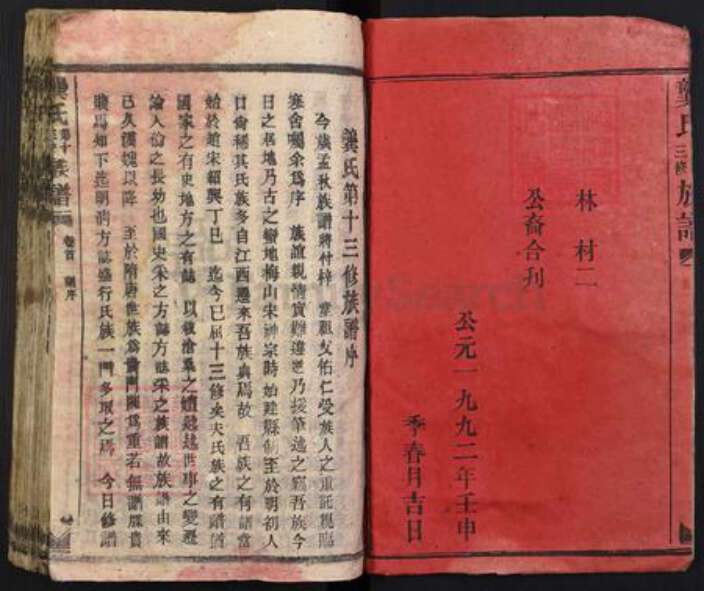 龔氏三修族譜
林村二
公裔合刊
公元一九九二年壬申
季春月吉日
龔氏第十三修族譜序
今族孟秋族譜將付梓 堂親友佑仁受族人之重託親臨
寒舍囑余為序 族誼親情實難違悖乃援筆述之竊吾族今
日之居地乃古之蠻地梅山宋神宗時始建縣制至於明初人
口尚稀其氏族多自江西遷來吾族與焉故 吾族之有譜當
始於迨宋紹興丁巳 迄今已屆十三修矣夫氏族之有譜猶
國家之有史地方之有誌 以敍滄桑之 世事之變遷
論人倫之長幼也國史采之方誌方誌采之族譜故族譜由來
已久漢魏以降 至於隋唐世族為 門閥為重若無譜牒貴
賤焉知下迄明清方誌盛行氏族一門多取之焉 今日修譜
龔氏 族譜 卷首 序